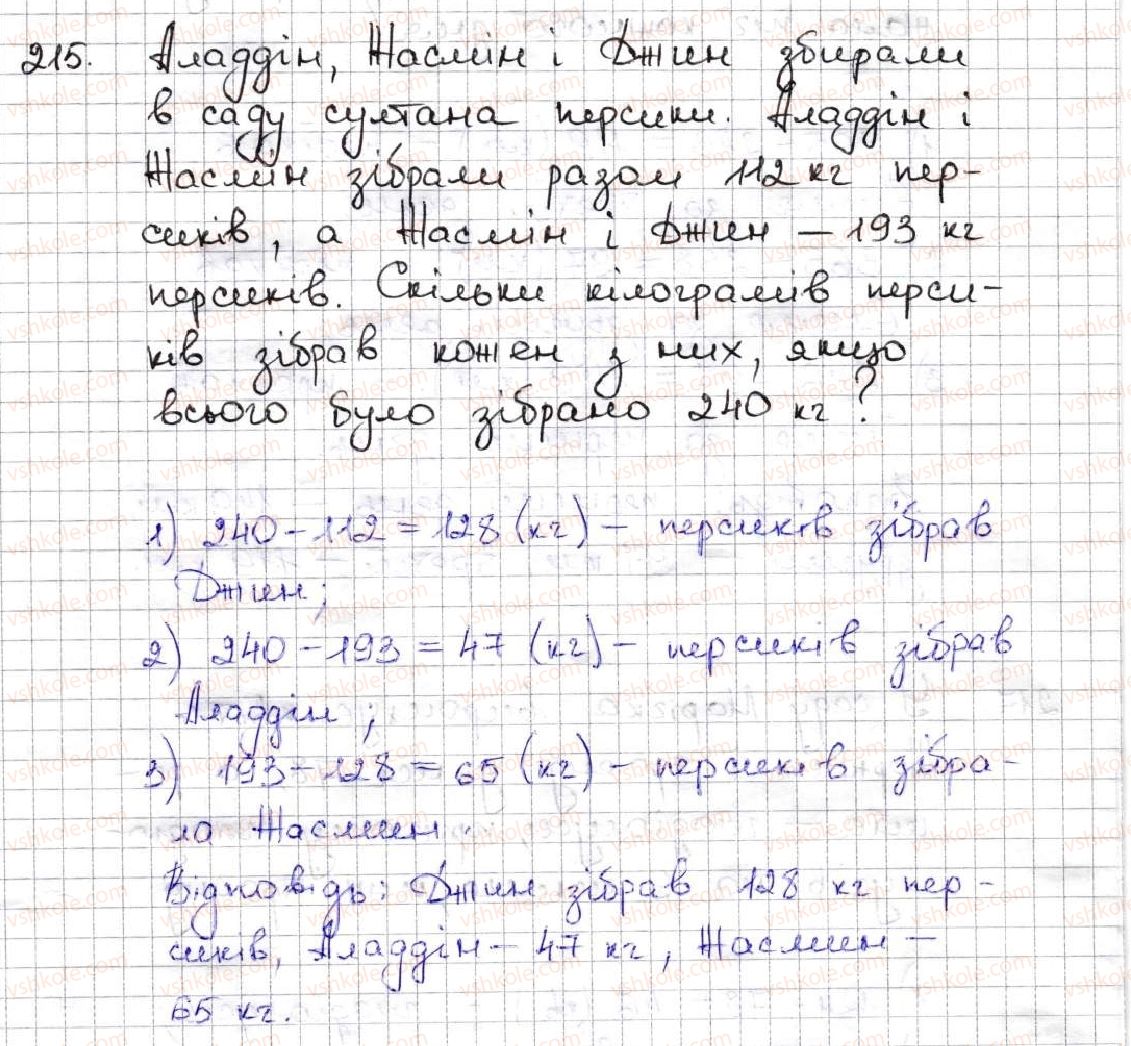 215. Аладдін, Жасмін і Джин збирали
в саду султана персики. Аладдін і
Жасмін зібрали разом 112 кг пер-
сиків, а Жасмін і Джин – 193 кг
персиків. Скільки кілограмів перси-
ків зібрав кожен з них, якщо
всього було зібрано 240 кг?
1) 240 – 112 = 128 (кг) – персиків зібрав
Джин;
2) 240 – 193 = 47 (кг) – персиків зібрав
Аладдін;
3) 193 – 128 = 65 (кг) – персиків зібра-
ла Жасмин.
Відповідь: Джин зібрав 128 кг пер-
сиків, Аладдін – 47 кг, Жасмин –
65 кг.